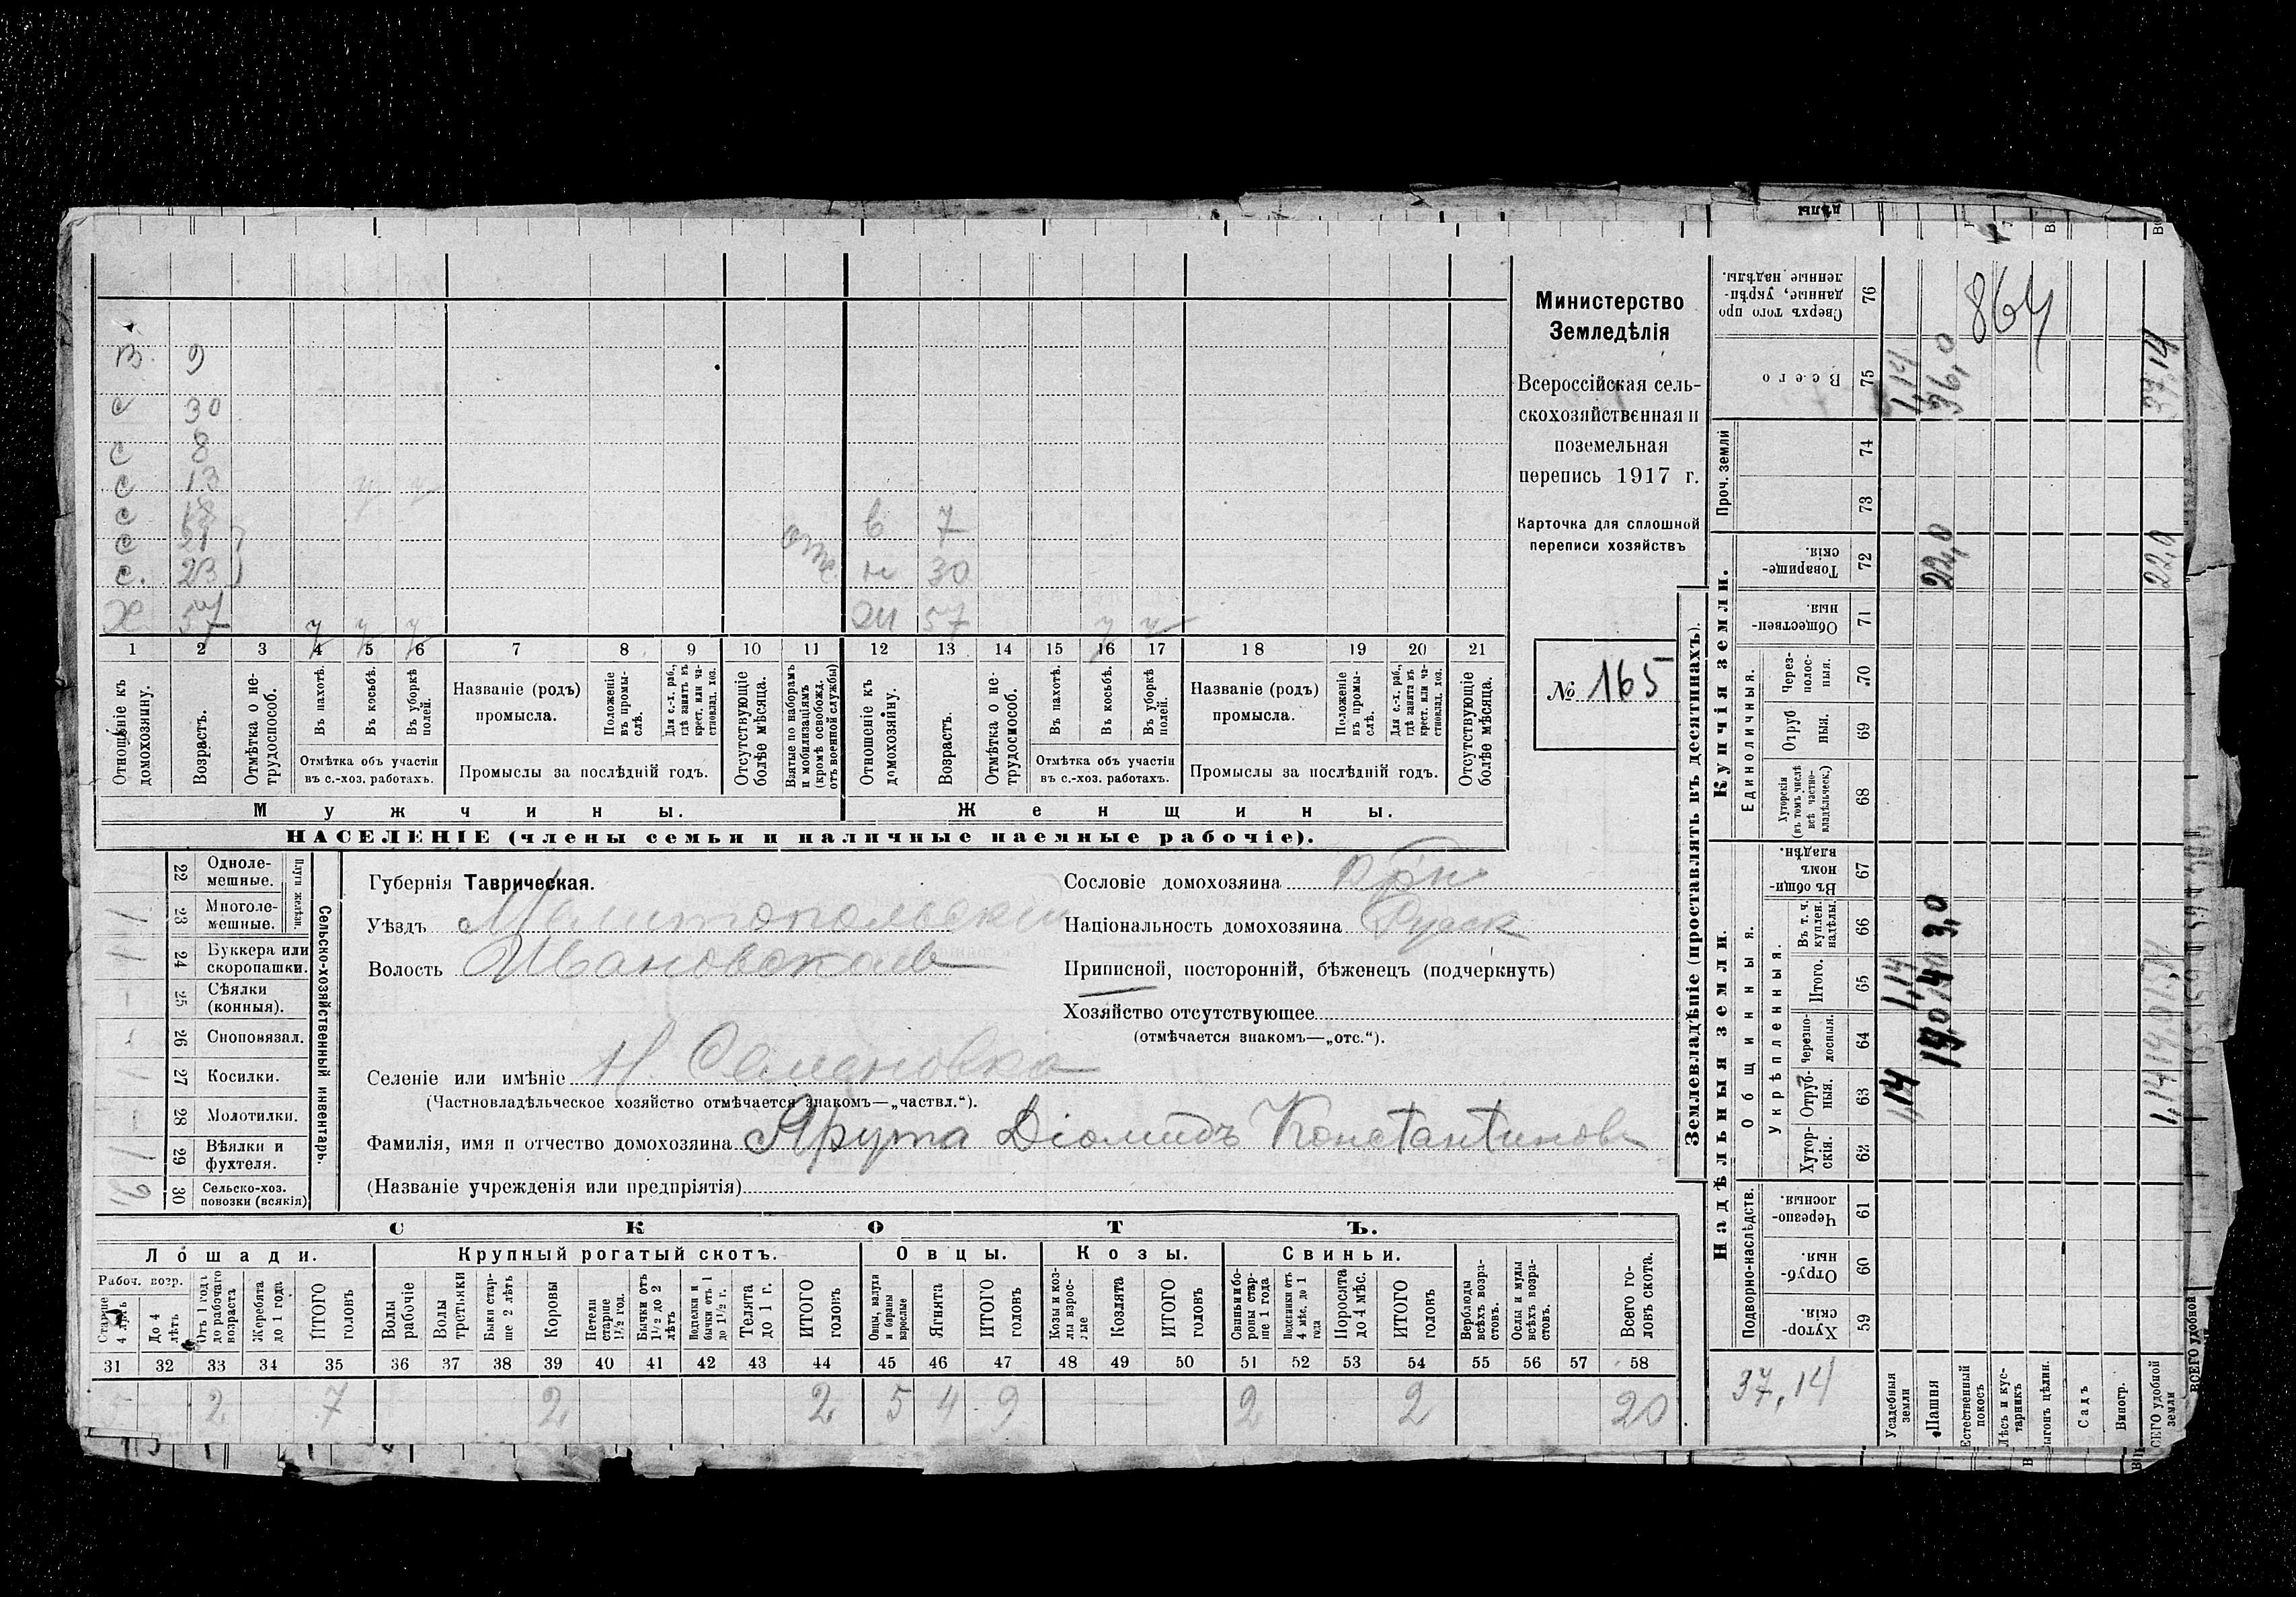 Министерство
Земледѣлія
Всероссійская сель-
скохозяйственная и
поземельная
перепись 1917 г.
Карточка для сплошной
переписи хозяйствъ
№ 165
в. 9
с 30
с 8
с 13 ч ч
с 18
с 21
с. 23
Х 57 ч ч ч
отс.
в 7
н 30
ж 57 ч ч
1 2 3 4 5 6 7 8 9 10 11 12 13 14 15 16 17 18 19 20 21
Отношеніе къ домохозяину.
Возрастъ.
Отмѣтка о не-трудоспособ.
Въ пахотѣ.
Въ косьбѣ.
Въ уборкѣ полей.
Отмѣтка объ участіи
въ с.-хоз. работахъ.
Названіе (родъ)
промысла.
Положеніе въ промы-слѣ.
Для с.-х. раб., гдѣ занятъ въ крест. или ча-стновлад. хоз.
Промыслы за послѣдній годъ.
Отсутствующіе болѣе мѣсяца.
Взятые по наборамъ и мобилизаціямъ (кромѣ освобожд. отъ военной службы)
Отношеніе къ домохозяину.
Возрастъ.
Отмѣтка о не-трудоспособ.
Въ пахотѣ.
Въ косьбѣ.
Въ уборкѣ полей.
Отмѣтка объ участіи
въ с.-хоз. работахъ.
Названіе (родъ)
промысла.
Положеніе въ промы-слѣ.
Для с.-х. раб., гдѣ занята въ крест. или ча-стновлад. хоз.
Промыслы за послѣдній годъ.
Отсутствующіе болѣе мѣсяца.
Мужчины.
Женщины.
НАСЕЛЕНІЕ (члены семьи и наличные наемные рабочіе).
Сельско-хозяйственный инвентарь.
Плуги желѣзн.
22 Одноле-мешные.
1 23 Многоле-мешные.
1 24 Буккера или скоропашки.
- 25 Сѣялки (конныя).
- 26 Сноповязал.
1 27 Косилки.
- 28 Молотилки.
1 29 Вѣялки и фухтеля.
30 Сельско-хоз. повозки (всякія)
Губернія Таврическая.
Уѣздъ Мелитопольскій
Волость Ивановская
Сословіе домохозяина крн
Національность домохозяина Русск
Приписной, посторонній, бѣженецъ (подчеркнуть)
Хозяйство отсутствующее
(отмѣчается знакомъ—„отс.“).
Селеніе или имѣніе Н. Семеновка
(Частновладѣльческое хозяйство отмѣчается знакомъ—„частвл.“).
Фамилія, имя и отчество домохозяина Ярута Діомидъ Константинов
(Названіе учрежденія или предпріятія)
СКОТЪ.
Лошади. Крупный рогатый скотъ. Овцы. Козы. Свиньи.
Рабоч. возр.
Старше 4 лѣтъ
До 4 лѣтъ
Отъ 1 года до рабочаго возраста
Жеребята до 1 года
ИТОГО головъ
Волы рабочіе
Волы третьяки
Быки стар-ше 2 лѣтъ
Коровы
Нетели старше 1½ год.
Бычки отъ 1½ до 2 лѣтъ
Подтелки и бычки отъ 1 до 1½ г.
Телята до 1 г.
ИТОГО головъ
Овцы, валухи и бараны взрослые
Ягнята
ИТОГО головъ
Козы и коз-лы взрос-лые
Козлята
ИТОГО головъ
Свиньи и бо-ровы стар-ше 1 года
Подсвинки отъ 4 мѣс. до 1 года
Поросята до 4 мѣс.
ИТОГО головъ
Верблюды всѣхъ возра-стовъ.
Ослы и мулы всѣхъ возра-стовъ.
Всего го-ловъ скота.
31 32 33 34 35 36 37 38 39 40 41 42 43 44 45 46 47 48 49 50 51 52 53 54 55 56 57 58
5 2 7 2 2 5 4 9 2 2 20
Землевладѣніе (проставлять въ десятинахъ).
Купчія земли.
Надѣльныя земли.
Проч. земли
Единоличныя.
Общинныя.
Укрѣпленныя.
Подворно-наслѣдств.
Сверхъ того про данные, укрѣп-ленные надѣлы. 76
Всего 75
74
73
Товарище-скія. 72
Обществен-ныя. 71
Черезпо-лос-ныя. 70
Отруб ныя. 69
Хуторскія (въ томъ числѣ всѣ частно-владѣльческ.) 68
Въ общи-номъ владѣн. 67
Въ т. ч. куплен. надѣлы. 66
Итого. 65
Черезпо-лосныя. 64
Отруб-ныя. 63
Хутор-скія. 62
Черезпо-лосныя. 61
Отруб-ныя. 60
Хутор-скія. 59
864
1,14 36,0 37,14
22,0 22,0
3,0
1,14
1,14
37,14
Усадебныя земли
Пашня
Естественный покосъ
Лѣсъ и кус-тарникъ
Садъ
Виногр.
ВСЕГО удобной